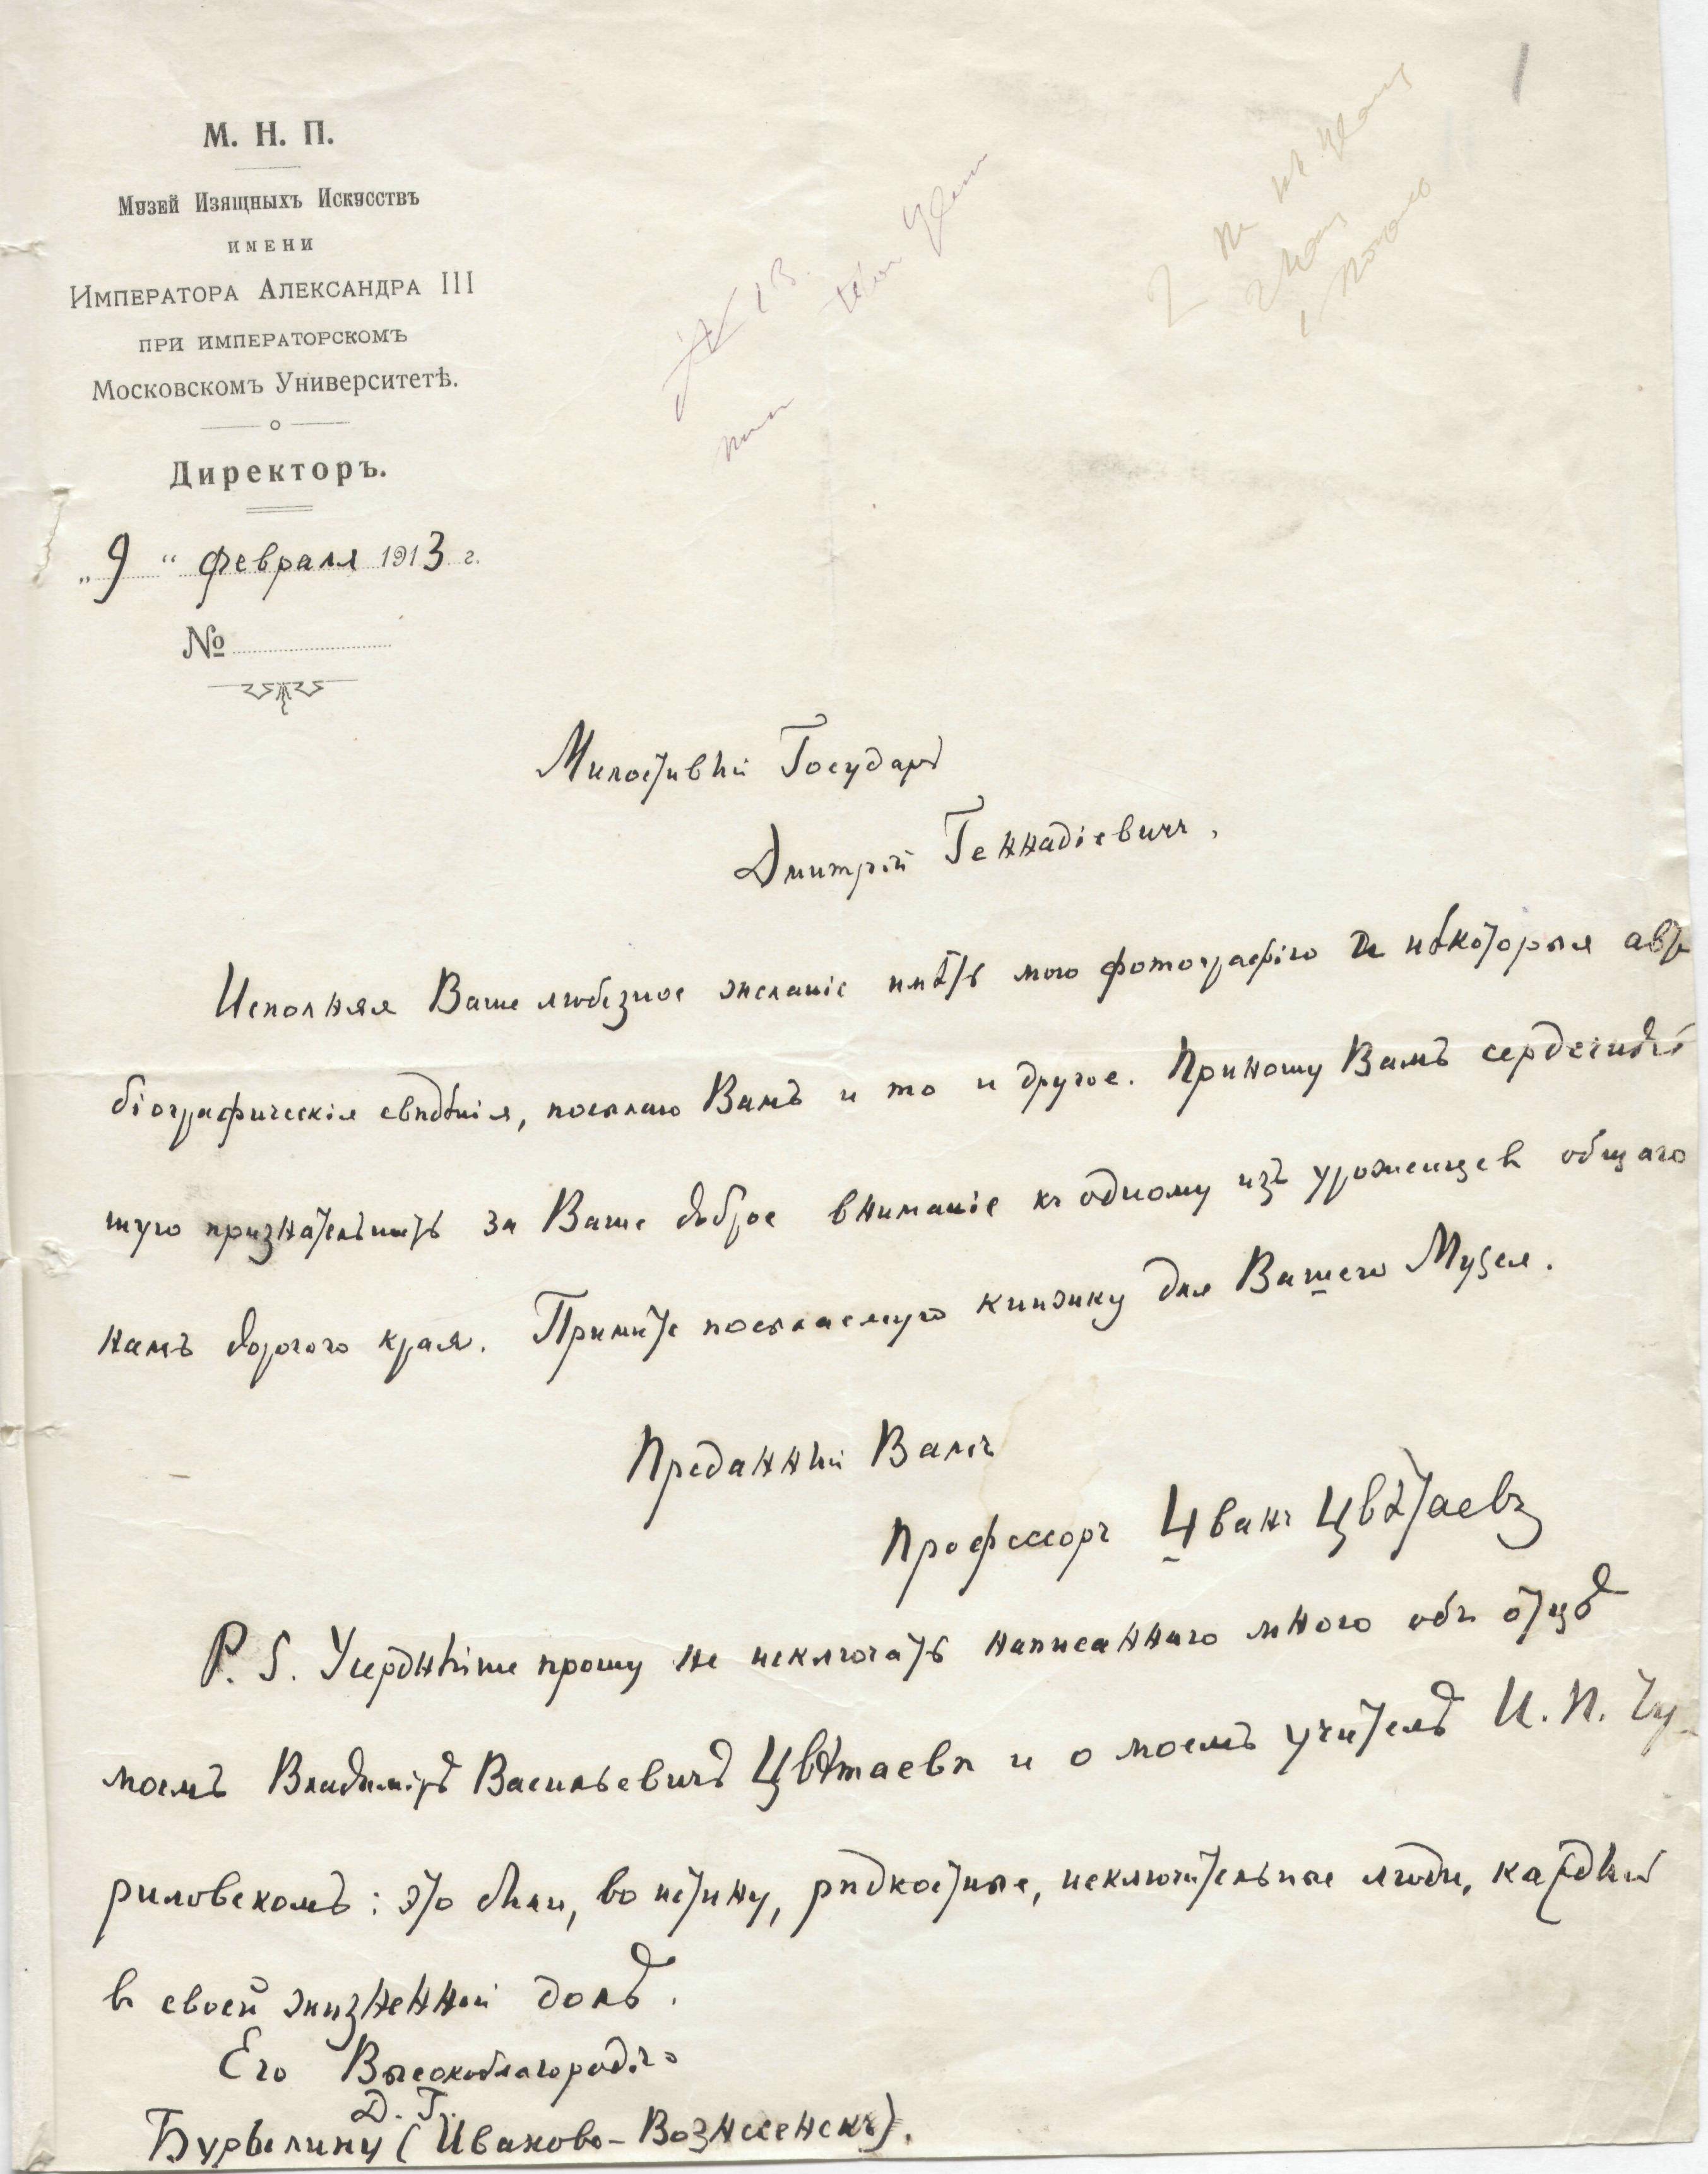 М. Н. П.
Музей Изящныхъ Искусствъ
имени
Императора Александра III
при императорскомъ
Московскомъ Университетѣ.
Директоръ.
„9“ февраля 1913 г.
№
Милостивый Государь
Дмитрій Геннадіевичъ,
Исполняя Ваше любезное желаніе имѣть мою фотографію и нѣкоторыя авто
біографическія свѣдѣнія, посылаю Вамъ и то и другое. Приношу Вамъ сердечнѣй
шую признательность за Ваше доброе вниманіе къ одному изъ уроженцевъ общаго
намъ дорогого края. Примите посылаемую книжку для Вашего Музея.
Преданный Вамъ
Профессоръ Иванъ Цвѣтаевъ
P. S. Усерднѣйше прошу не исключать написаннаго мною объ отцѣ
моемъ Владимірѣ Васильевичѣ Цвѣтаевѣ и о моемъ учителѣ И. П. Чу
риловскомъ: это были, во истину, рѣдкостные, исключительные люди, каждый
въ своей жизненной долѣ.
Его Высокоблагородію
Д. Г.
Бурылину (Иваново-Вознесенскъ).